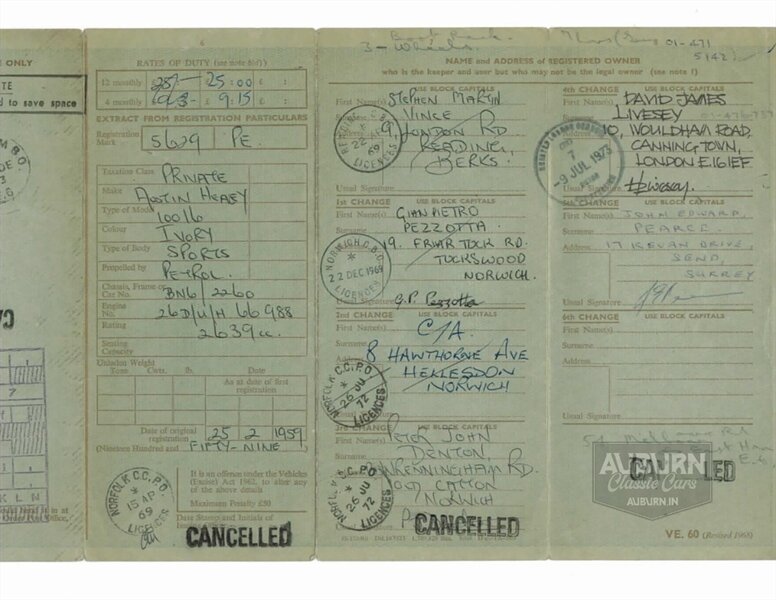 E ONLY
TE
d to save space
6
RATES OF DUTY (see note 6(d))
12 monthly £25/- 25:00 £ :
4 monthly £ 9.15 £ :
EXTRACT FROM REGISTRATION PARTICULARS
Registration Mark 5629 PE.
Taxation Class PRIVATE
Make AUSTIN HEALEY
Type of Model 100/6
Colour IVORY
Type of Body SPORTS
Propelled by PETROL.
Chassis, Frame or Car No. BN6/2260
Engine No. 26D/U/H 66988
Rating 2639cc.
Seating Capacity
Unladen Weight
Tons Cwts. lb. Date
As at date of first registration
Date of original registration 25 2 1959
(Nineteen Hundred and FIFTY-NINE.)
NORFOLK C.C.P.O
15 AP 69
LICENCES
It is an offence under the Vehicles
(Excise) Act 1962, to alter any
of the above details
Maximum Penalty £50
Date Stamp and Initials of
CANCELLED
Boot Rack.
3-Wheels
01-471
5142
NAME and ADDRESS of REGISTERED OWNER
who is the keeper and user but who may not be the legal owner (see note 1)
First Name(s) USE BLOCK CAPITALS
STEPHEN MARTIN
VINCE
LONDON RD
READING,
BERKS.
22
69
LICENCES
Usual Signature
1ST CHANGE USE BLOCK CAPITALS
First Name(s) GIAN PIETRO
Surname PEZZOTTA
19. FRIAR TUCK RD.
TUCKSWOOD
NORWICH.
NORWICH C.B.O.
22 DEC 1969
LICENCES
Usual Signature G.P. Pezzotta
2ND CHANGE USE BLOCK CAPITALS
First Name(s)
C/A.
Surname
8 HAWTHORNE AVE
HELLESDON
NORWICH
NORFOLK C.C.P.O
26 JU 72
LICENCES
3RD CHANGE USE BLOCK CAPITALS
First Name(s) PETER JOHN
Surname DENTON.
RD.
OLD CATTON
NORWICH
NORFOLK C.C.P.O
26 JU 72
LICENCES
CANCELLED
4TH CHANGE USE BLOCK CAPITALS
First Name(s) DAVID JAMES
LIVESEY
10, WOULDHAM ROAD.
CANNING TOWN,
LONDON E.16 1EF
-9 JUL 1973
Usual Signature
USE BLOCK CAPITALS
First Name(s) JOHN EDWARD,
Surname PEARCE.
Address 17 KEVAN DRIVE,
SEND,
SURREY
Usual Signature
6TH CHANGE USE BLOCK CAPITALS
First Name(s)
Surname
Address
Usual Signature
CANCELLED
AUBURN
Classic Cars
AUBURN.IN
VE. 60 (Revised 1968)